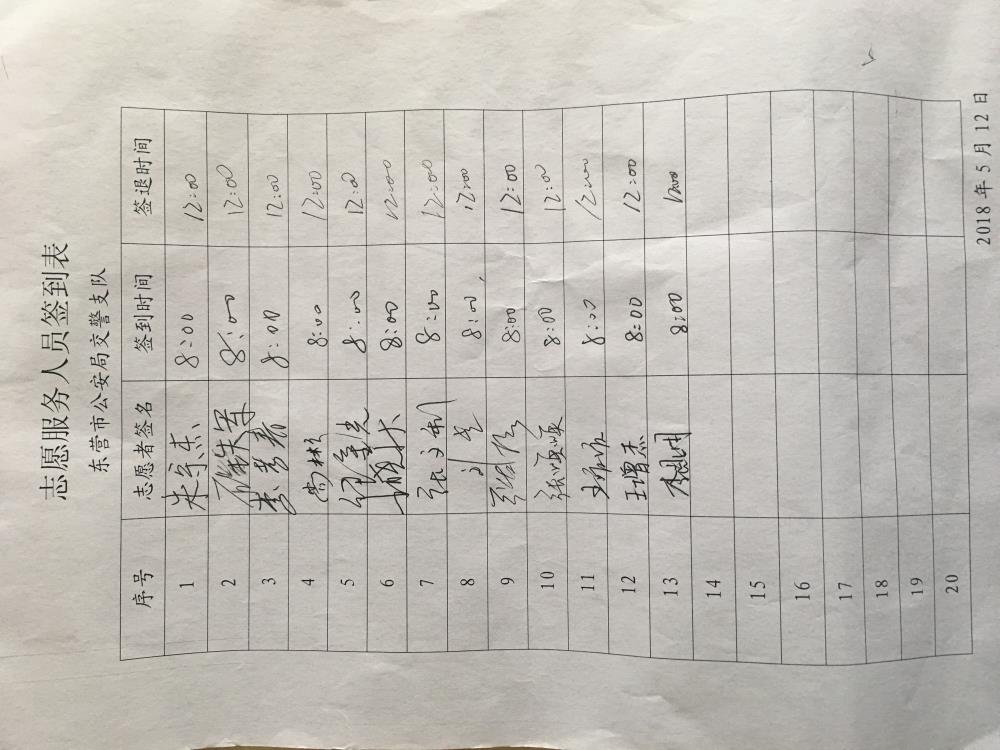 志愿服务人员签到表
东营市公安局交警支队
序号 志愿者签名 签到时间 签退时间
1 8:00 12:00
2 8:00 12:00
3 8:00 12:00
4 尚彬彬 8:00 12:00
5 8:00 12:00
6 8:00 12:00
7 张文利 8:00 12:00
8 8:00 12:00
9 8:00 12:00
10 张颂颂 8:00 12:00
11 8:00 12:00
12 王增杰 8:00 12:00
13 8:00 12:00
14
15
16
17
18
19
20
2018 年 5 月 12 日